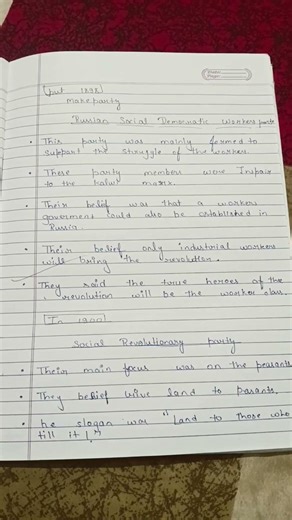 but 1898
make party
Russian Social Democratic Workers party
• This party was mainly formed to
support the struggle of the workers.
• These party members were Inspair
to the karul marx.
• Their belief was that a workers
government could also be established in
Russia
• Their belief only industorial workers
will bring the revolution.
• They said the true heroes of the
revolution will be the worker class.
In 1900
Social Revolutionary party
• Their main focus was on the peasants
• They belief give land to parants.
• he slogan was "Land to those who
till it !"